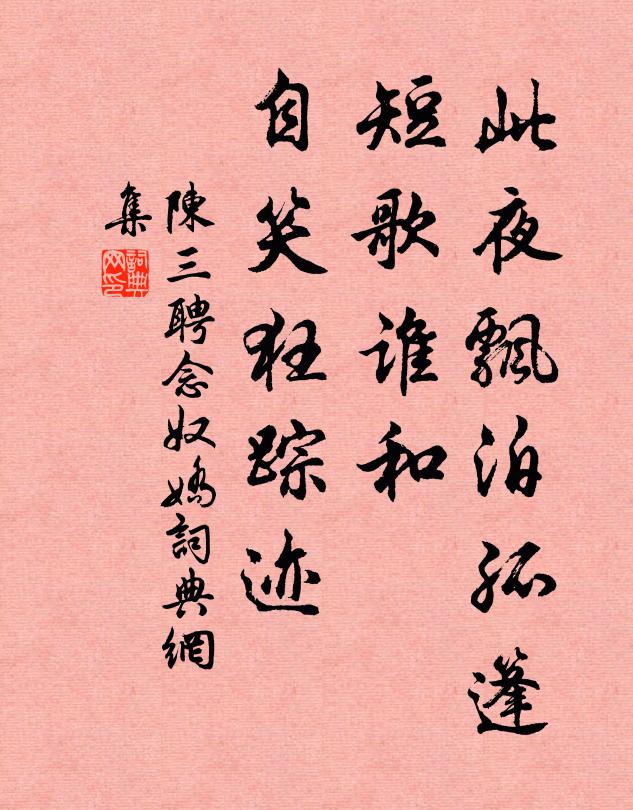 此夜飄泊孤篷
短歌谁和
自笑狂踪迹
陳三聘念奴嬌詞典網
集
詞典
网印